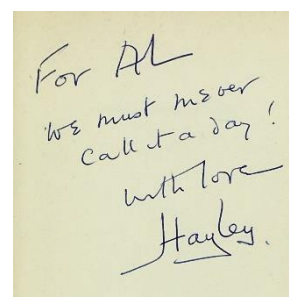 For AL
We must never
Call it a day!
with love
Hayley.